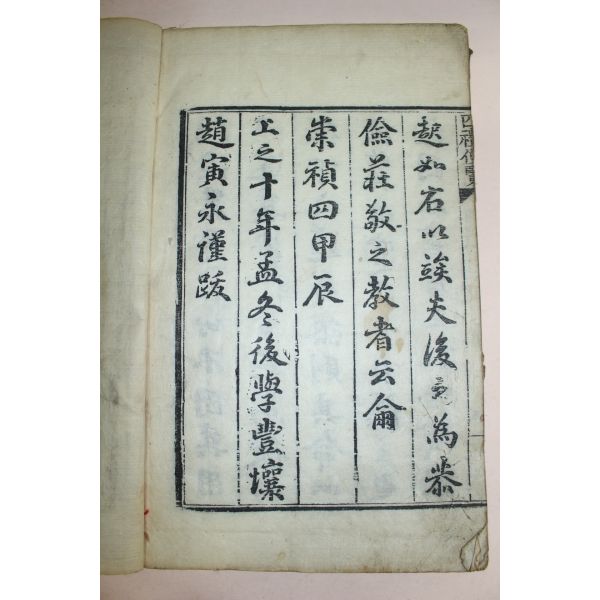 四禮便覽
起如右以竢夫後之爲恭
儉莊敬之教者云爾
崇禎四甲辰
上之十年孟冬後學豐壤
趙寅永謹跋